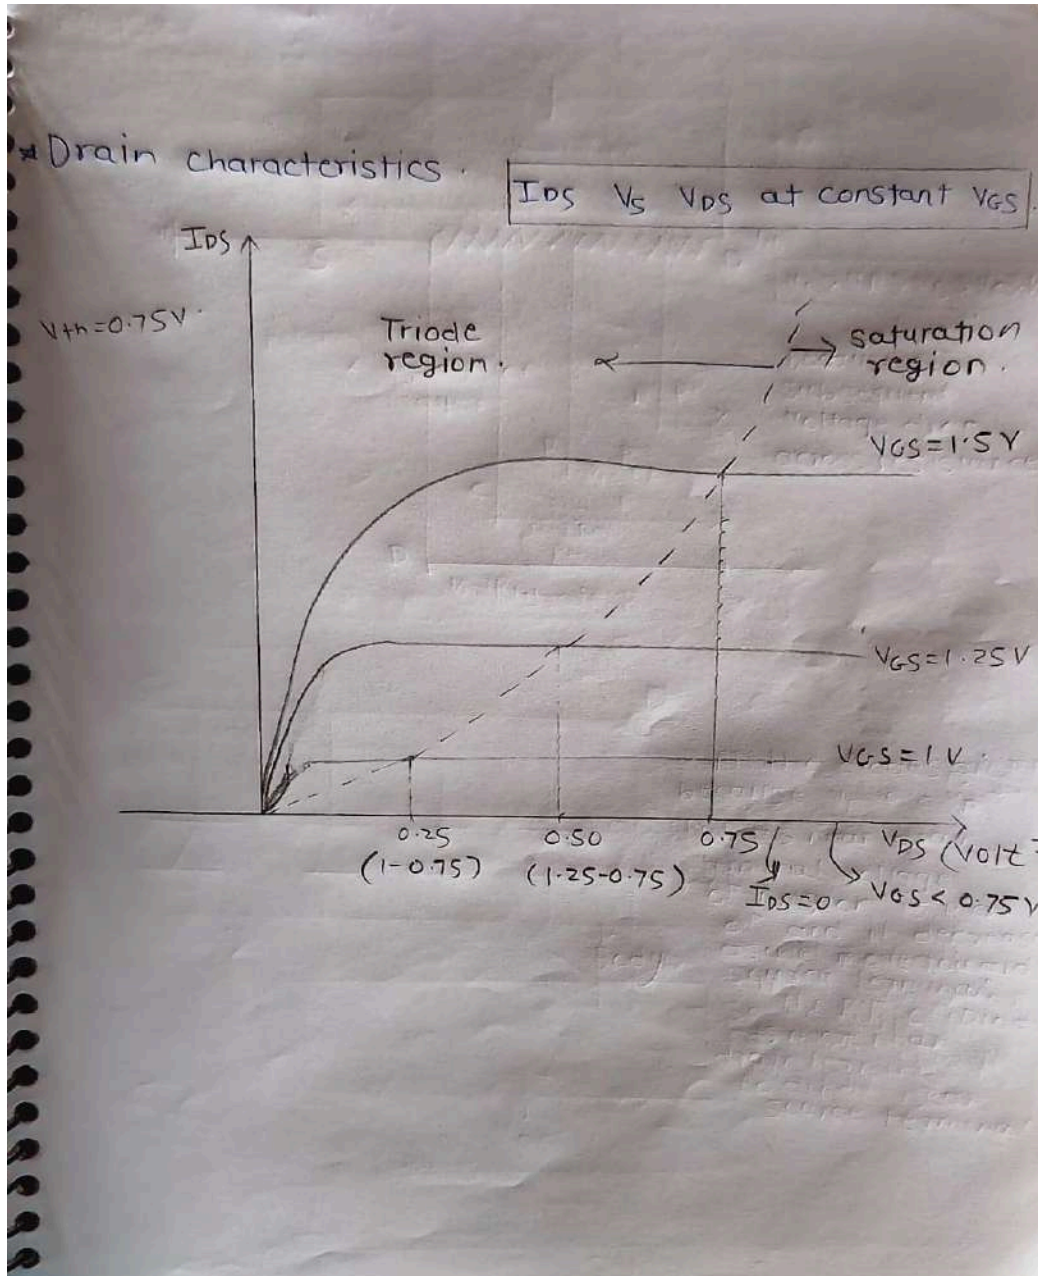 * Drain characteristics.
IDS Vs VDS at constant VGS.
IDS
Vth=0.75V
Triode
region.
saturation
region.
VGS=1.5V
VGS=1.25V
VGS=1V
0.25
(1-0.75)
0.50
(1.25-0.75)
0.75
VDS (volt
IDS=0
VGS<0.75V